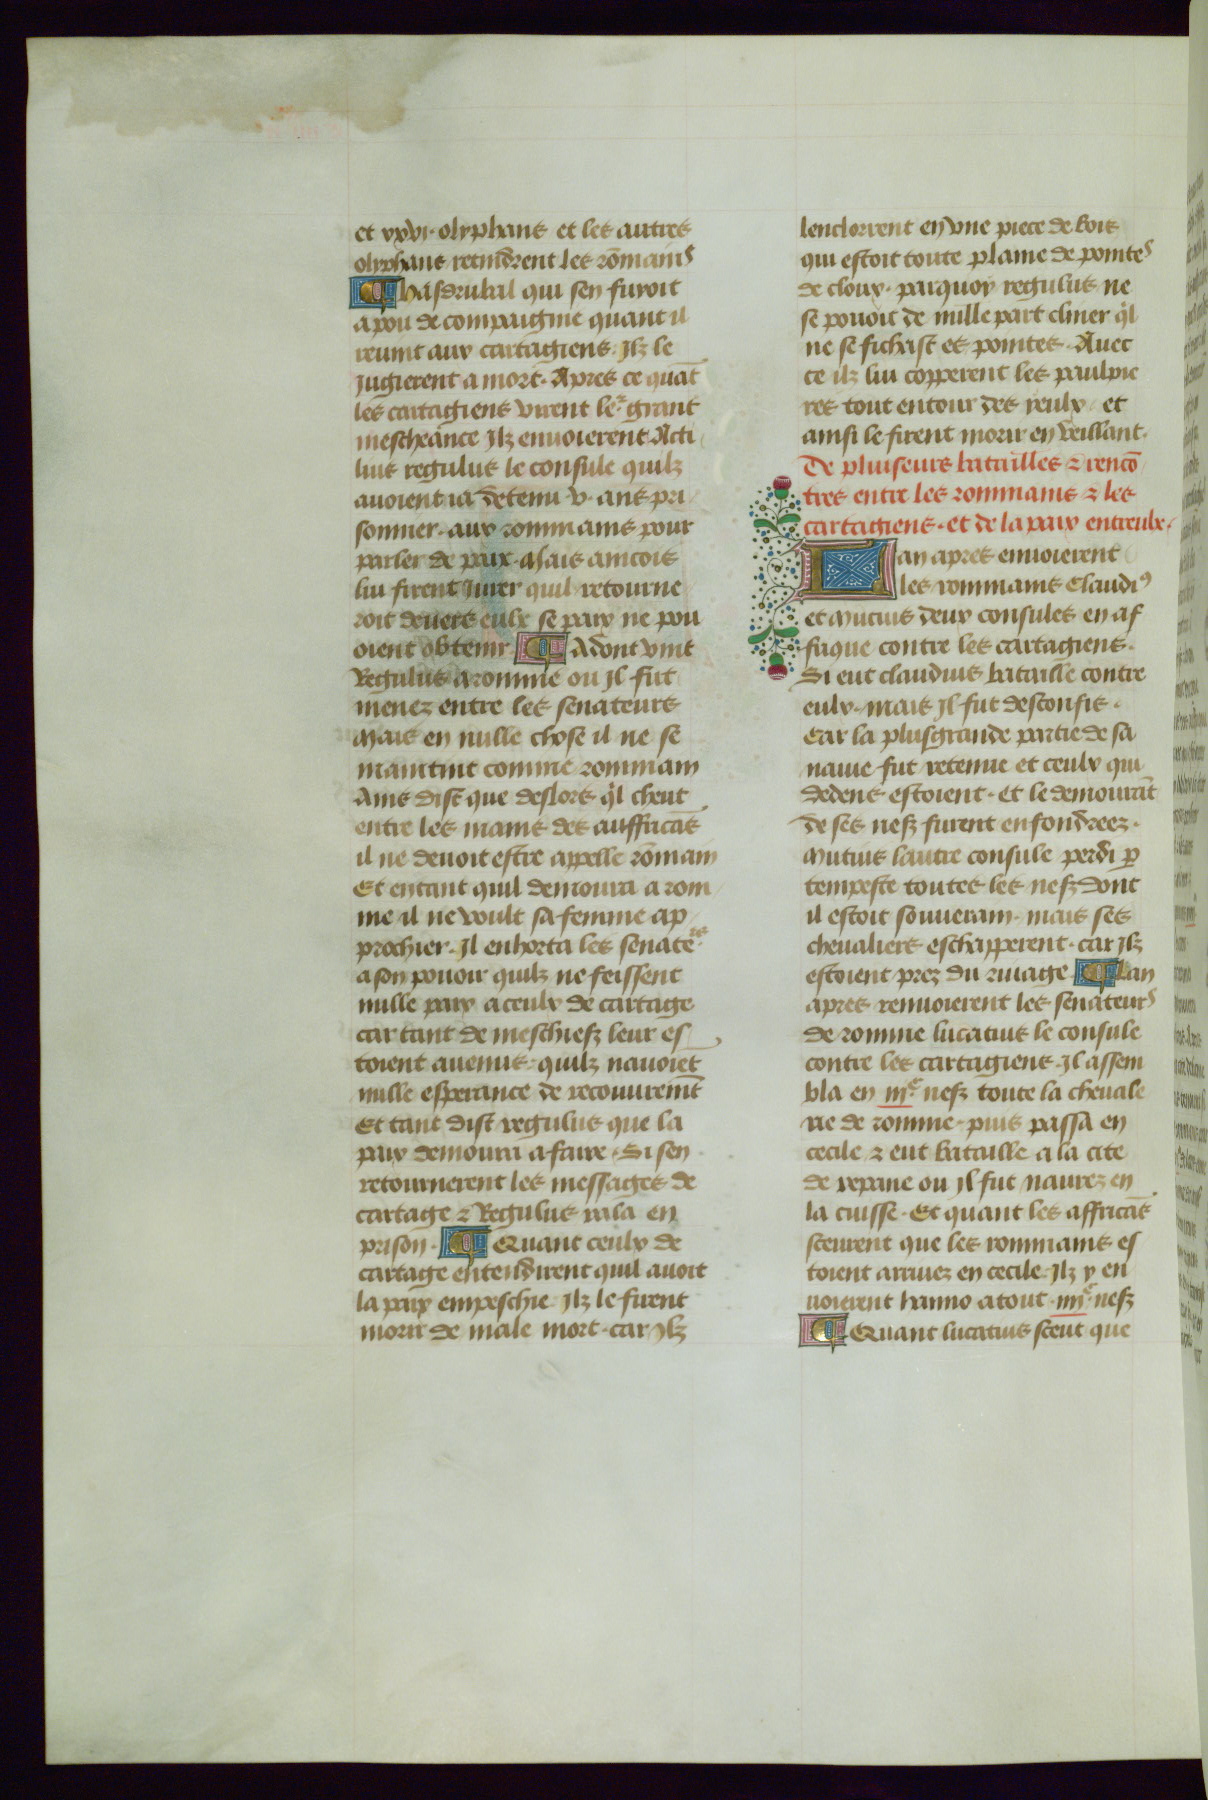 et xxvi. olyphans et les autres
olyphans retindrent les rõmains
Hasdrubal qui sen fuyoit
a pou de compaignie quant il
reuint aux cartagiens. Jlz le
jugierent a mort. Apres ce quãt
les cartagiens virent ler grant
mescheance Jlz enuoierent Acti
lius regulus le consule quilz
auoient ia detenu v. ans pri
sonnier. aux rommains pour
parler de paix. Mais aincois
lui firent Jurer quil retourne
roit deuers eulx se paix ne pou
oient obtenir. Adont vint
Regulus a romme ou Jl fut
menez entre les senateurs
Mais en nulle chose il ne se
maintint comme rommain
Ains dist que deslors ql cheut
entre les mains des auffricãs
il ne deuoit estre appelle rõmain
Et entant quil demoura a rom
me il ne voult sa femme ap
prochier. Jl enhorta les senaters
a son pouoir quilz ne feissent
nulle paix a ceulx de cartage
car tant de meschiefz leur es
toient auenus. quilz nauoiẽt
nulle esperance de recouuremẽt
Et tant dist regulus que la
paix demoura a faire. Si sen
retournerent les messages de
cartage & Regulus rala en
prison. Quant ceulx de
cartage entendirent quil auoit
la paix empeschie Jlz le firent
morir de male mort. car Jlz
lenclorrent en vne piece de bois
qui estoit toute plaine de pointes
de cloux. parquoy regulus ne
se pouoit de nulle part cliner ql
ne se fichast es pointes. Auec
ce ilz lui copperent les paulpie
res tout entour des yeulx et
ainsi le firent morir en veillant.
De pluiseurs batailles & rencõ
tres entre les rommains & les
cartagiens. et de la paix entreulx.
Lan apres enuoierent
les rommains Claudius
et Mucius deux consules en af
frique contre les cartagiens.
Si eut claudius bataille contre
eulx. mais Jl fut desconfis.
Car la plusgrande partie de sa
nauie fut retenue et ceulx qui
dedens estoient. et le demourãt
de ses nefz furent enfondreez.
Mutius lautre consule perdi p
tempeste toutes les nefz dont
il estoit souuerain. mais ses
cheualiers eschapperent. car Jlz
estoient prez du riuage. Lan
apres renuoierent les senateurs
de romme lucatius le consule
contre les cartagiens. Jl assem
bla en iijc. nefz toute la cheuale
rie de romme. puis passa en
cecile & eut bataille a la cite
de repane ou Jl fut naurez en
la cuisse. Et quant les affricãs
sceurent que les rommains es
toient arriuez en cecile. Jlz y en
uoierent hanno atout. iiijc. nefz
Quant lucatius sceut que